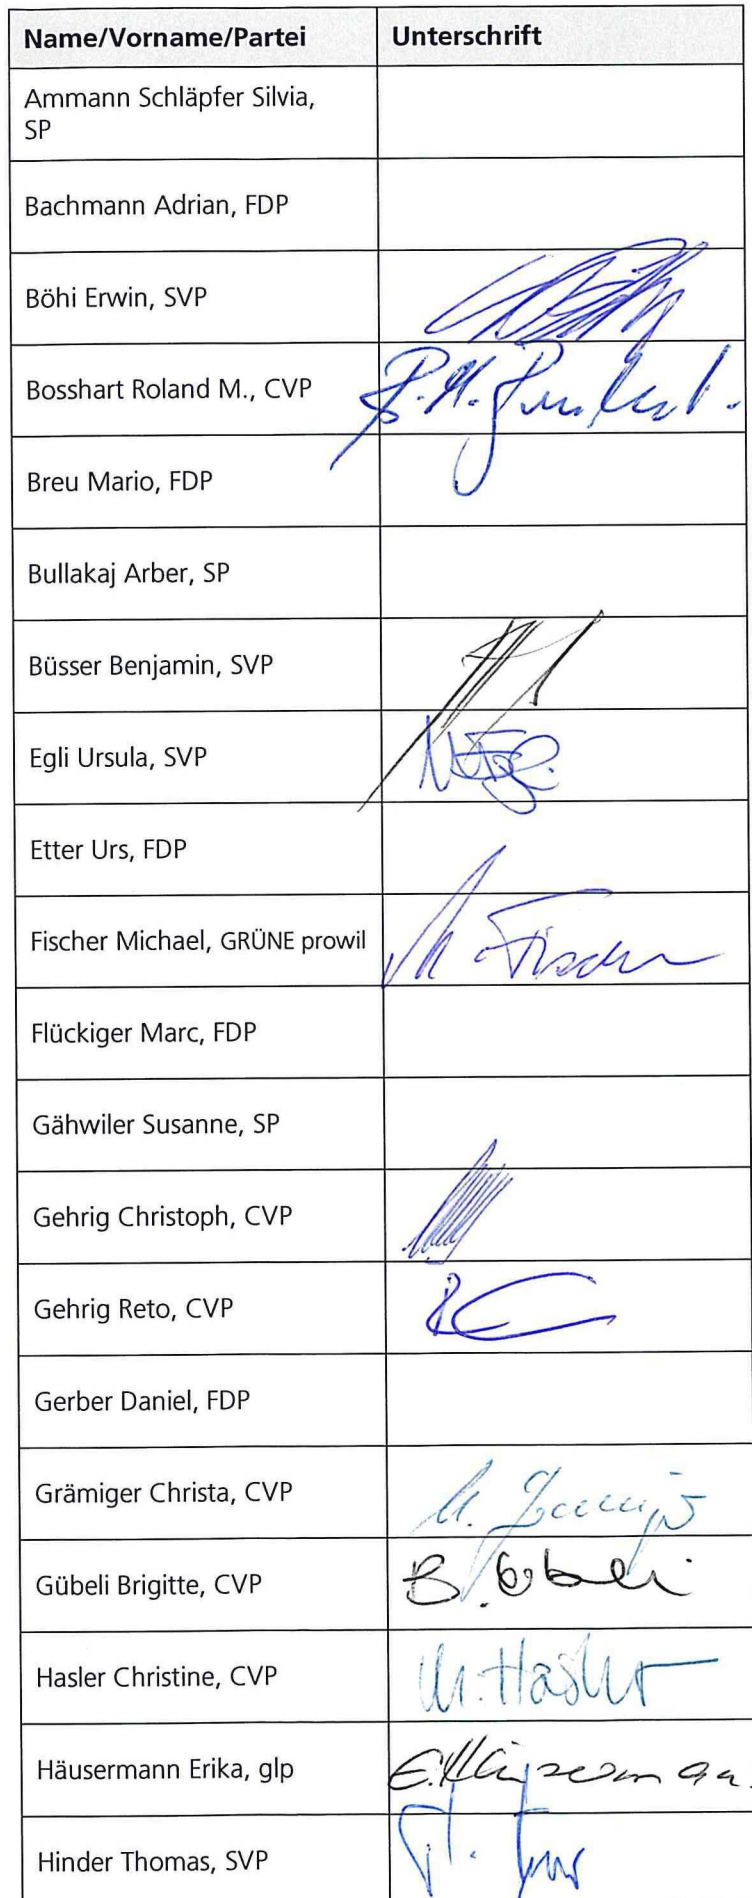 Name/Vorname/Partei Unterschrift
Ammann Schläpfer Silvia,
SP
Bachmann Adrian, FDP
Böhi Erwin, SVP
Bosshart Roland M., CVP
Breu Mario, FDP
Bullakaj Arber, SP
Büsser Benjamin, SVP
Egli Ursula, SVP
Etter Urs, FDP
Fischer Michael, GRÜNE prowil M. Fischer
Flückiger Marc, FDP
Gähwiler Susanne, SP
Gehrig Christoph, CVP
Gehrig Reto, CVP
Gerber Daniel, FDP
Grämiger Christa, CVP
Gübeli Brigitte, CVP
Hasler Christine, CVP
Häusermann Erika, glp
Hinder Thomas, SVP